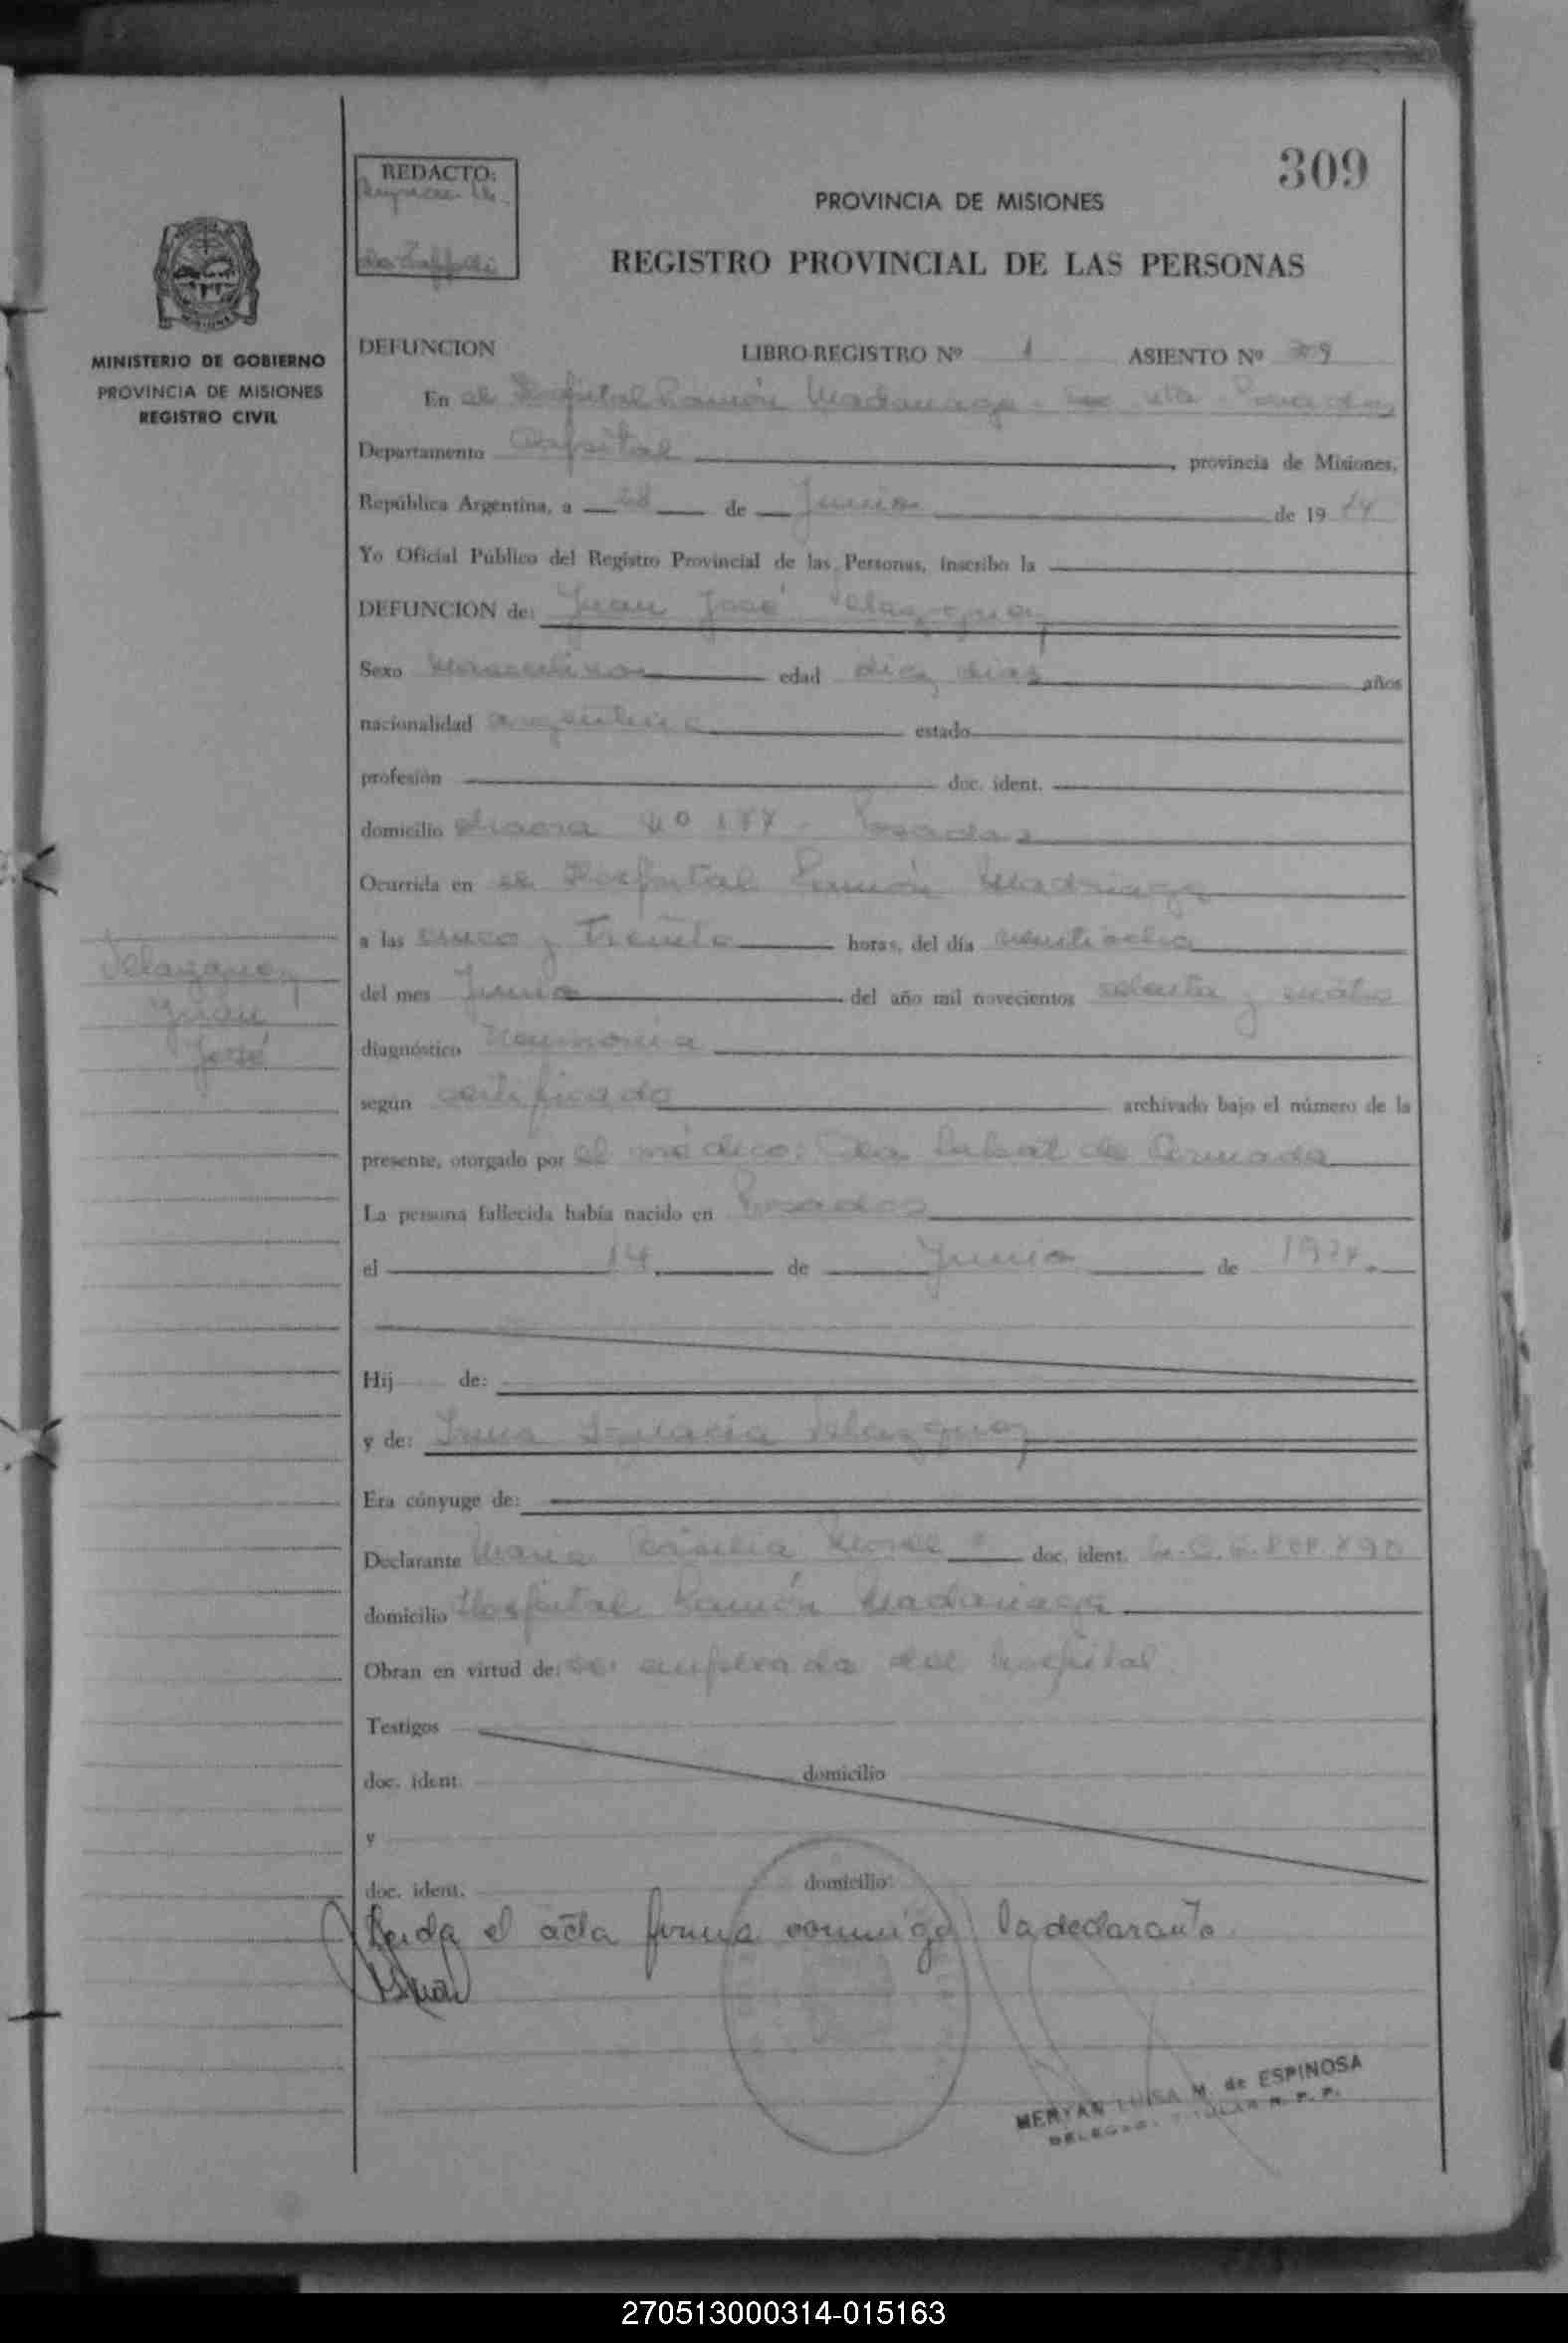 309
REDACTO:
PROVINCIA DE MISIONES
REGISTRO PROVINCIAL DE LAS PERSONAS
MINISTERIO DE GOBIERNO
PROVINCIA DE MISIONES
REGISTRO CIVIL
DEFUNCION LIBRO-REGISTRO Nº 1 ASIENTO Nº
En el Hospital Ramón Madariaga Posadas
Departamento Capital, provincia de Misiones,
República Argentina, a 28 de Junio de 19 74
Yo Oficial Público del Registro Provincial de las Personas, inscribo la
DEFUNCION de: Juan José Velazquez
Sexo Masculino edad diez dias años
nacionalidad argentina estado
profesión doc. ident.
domicilio Posadas
Ocurrida en el Hospital Ramón Madariaga
a las cinco y treinta horas, del día veintiocho
del mes Junio del año mil novecientos setenta y cuatro
Velazquez
Juan
José
diagnóstico Neumonia
según certificado archivado bajo el número de la
presente, otorgado por el médico: de
La persona fallecida había nacido en Posadas
el 14 de Junio de 1974.
Hij de:
y de: Ignacia Velazquez
Era cónyuge de:
Declarante Maria doc. ident. L.C.
domicilio Hospital Ramón Madariaga
Obran en virtud de: ser empleada del hospital
Testigos
doc. ident. domicilio
y
doc. ident. domicilio
Leida el acta firma conmigo la declarante
MERYAN LUISA M. de ESPINOSA
DELEGADA TITULAR R. P. P.
270513000314-015163